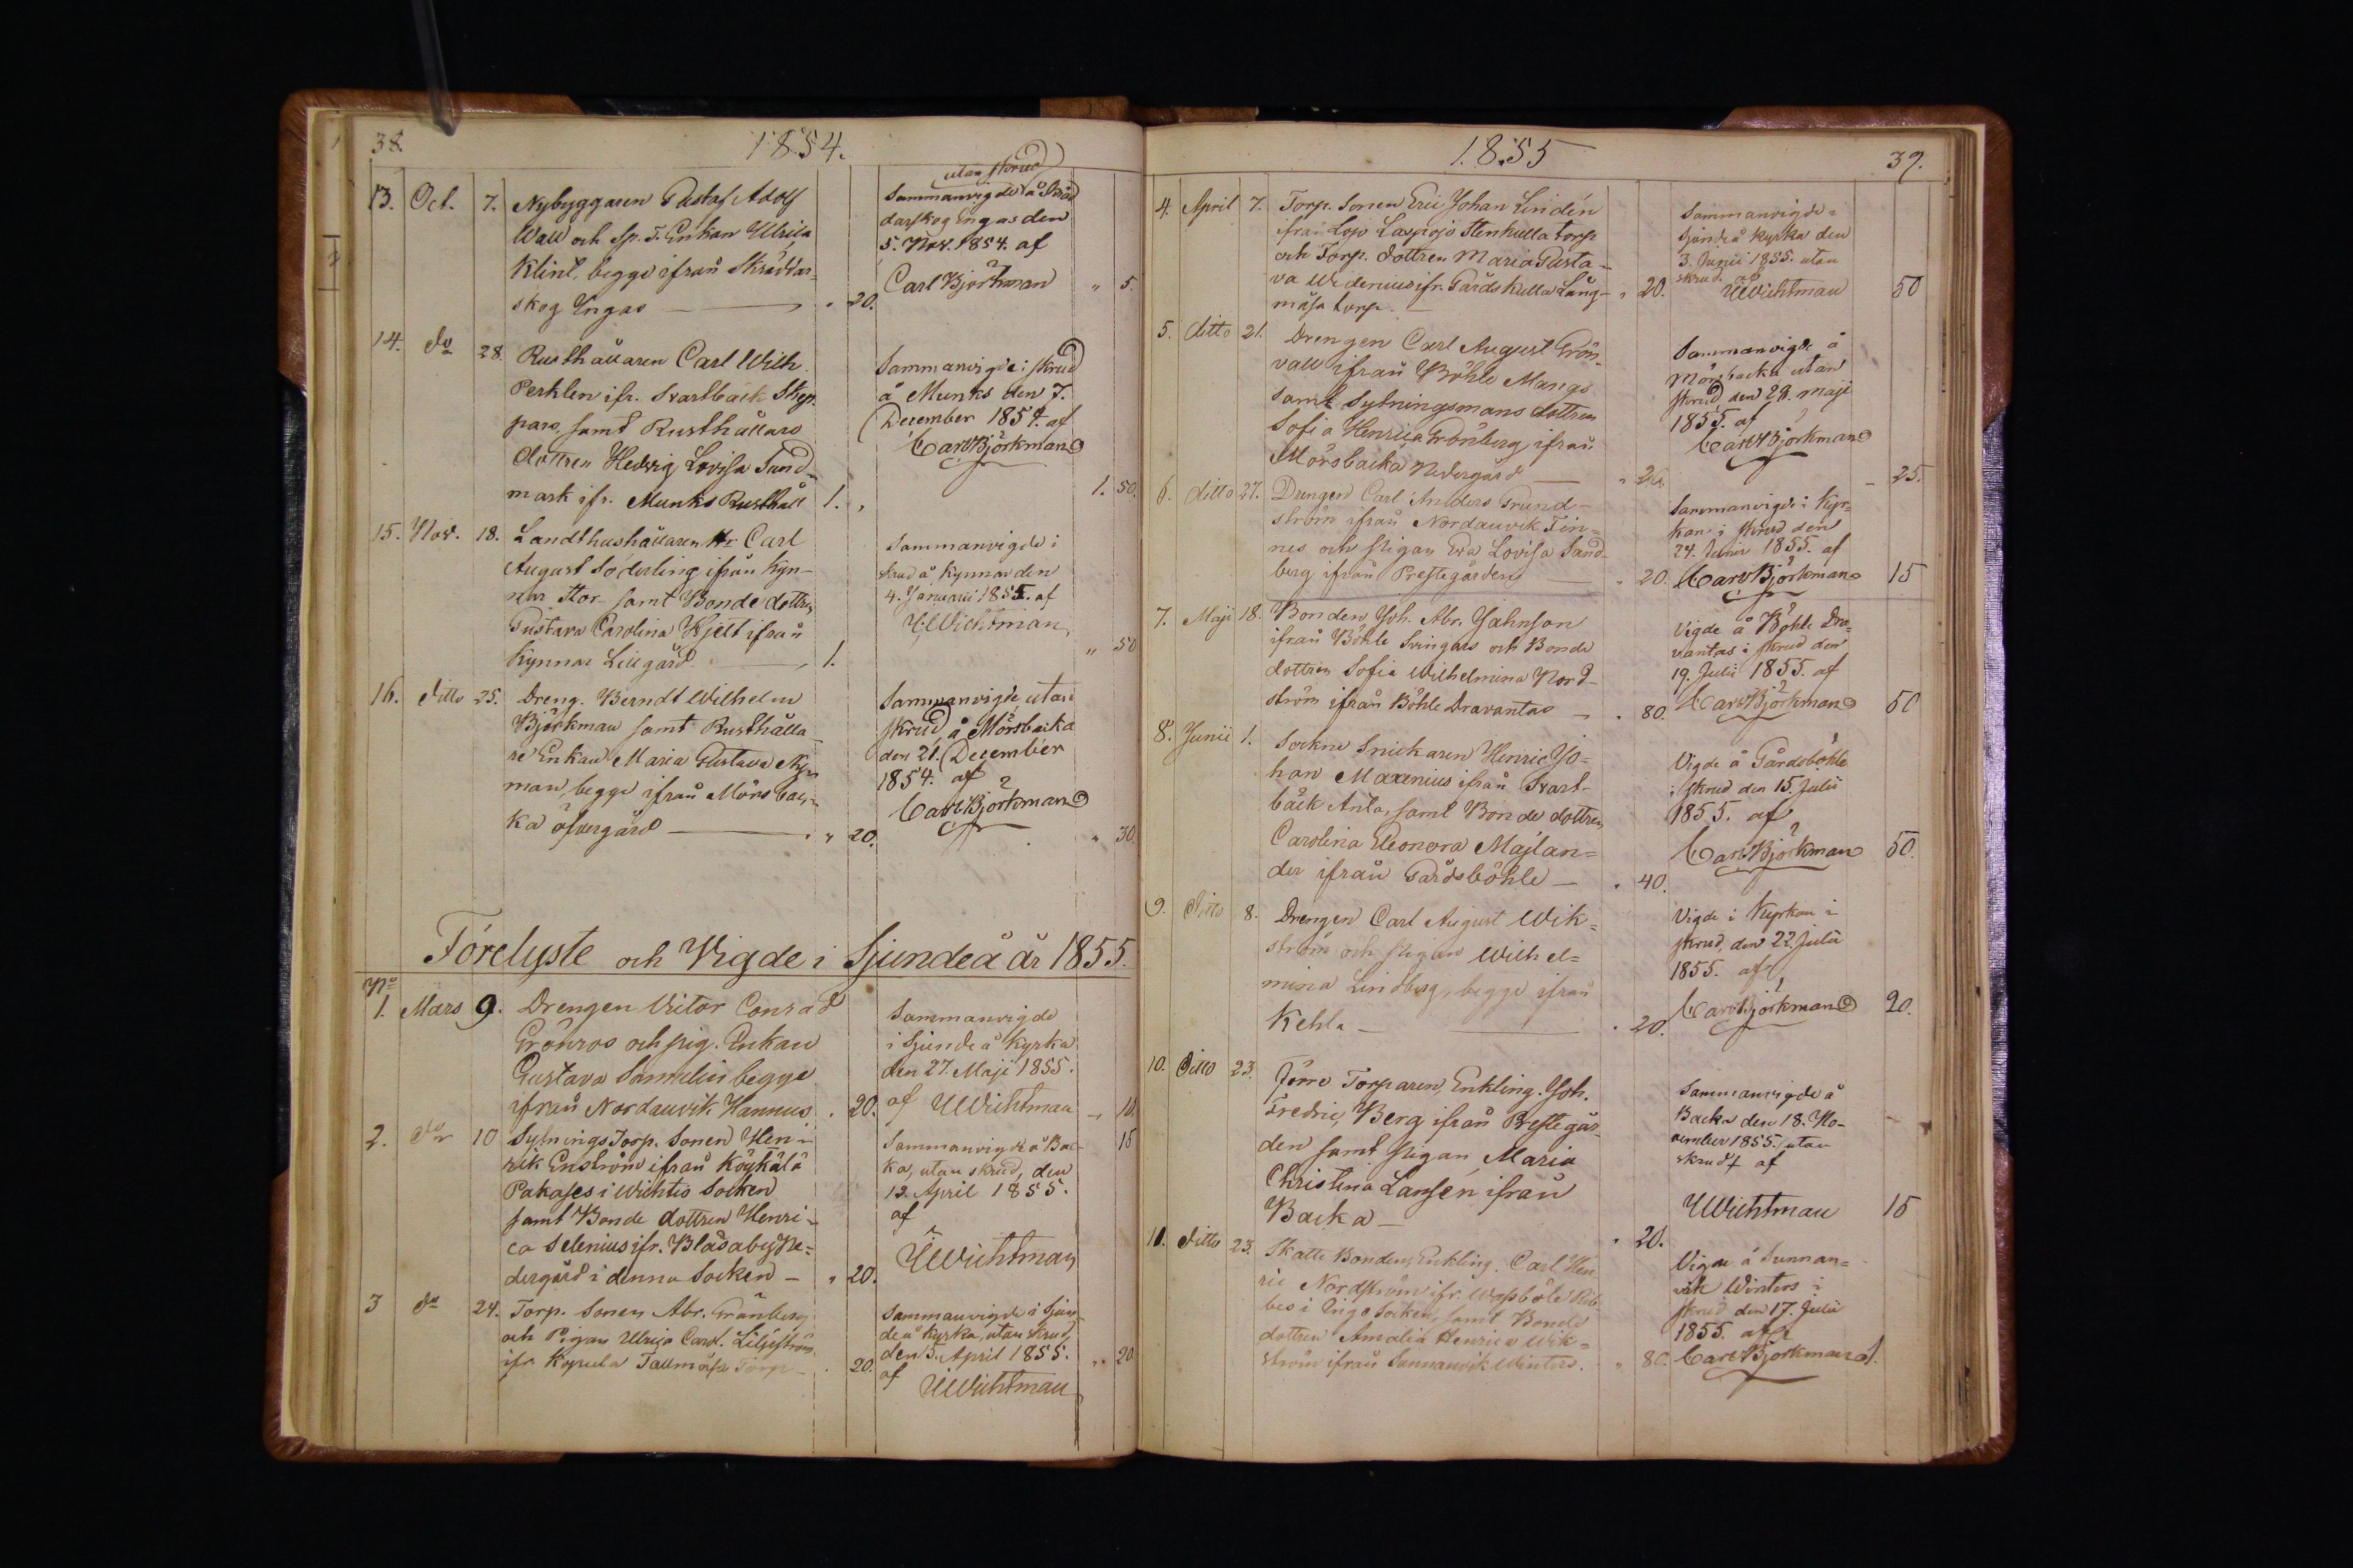 38.
1854.
13. Oct. 7. Nybyggaren Gustaf Adolf
Wall och Sp. T. Enkan Ulrica
Klint, begge ifrån Skräddar-
skog Ingas — " 20.
utan skrud
Sammanvigde å Skräd
darskog Ingas den
5. Nov. 1854. af
Carl Björkman " 5.
14. do 28. Rusthållaren Carl Wilh.
Perklen ifr. Svartbäck Skep-
pars, samt Rusthållars
dottren Hedvig Lovisa Sund-
mark ifr. Munks Rusthåll 1. "
Sammanvigde i skrud
å Munks den 7.
December 1854. af
Carl Björkman
1. 50.
15. Nov. 18. Landthushållaren Hr Carl
August Söderling ifrån Kyn-
nar Stor- samt Bonde dottren
Gustava Carolina Hjelt ifrån
Kynnar Lillgård — 1.
Sammanvigde i
skrud å Kynnar den
4. Januarii 1855. af
UWichtman
" 50
16. ditto 25. Dreng. Berndt Wilhelm
Björkman samt Rusthålla-
re Enkan Maria Gustava Ny-
man, begge ifrån Mörsbac-
ka öfvergård — " 20.
Sammanvigde utan
skrud å Mörsbacka
den 21. December
1854. af
Carl Björkman
" 30.
Förelyste och Vigde i Sjundeå år 1855.
No
1. Mars 9. Drengen Victor Conrad
Grönros och pig. Enkan
Gustava Samelin begge
ifrån Nordanvik Hannus . 20.
Sammanvigde
i Sjundeå Kyrka
den 27. Maji 1855.
af UWichtman — 10.
2. do 10 Sytnings Torp. Sonen Hen-
rik Enström ifrån Köykälä
Pakases i Wichtis Socken
samt Bonde dottren Henri-
ca Selenius ifr. Blåsaby Ne-
dergård i denna Socken — " 20.
Sammanvigde å Bac-
ka, utan skrud, den
12. April 1855.
af
UWichtman
15
3 do 24. Torp. Sonen Abr. Granberg
och Pigan Ulrica Carol. Liljeström
ifr Kopula Tallmåsa Torp — . 20.
Sammanvigde i Sjun-
deå Kyrka, utan skrud
den 15. April 1855.
af UWichtman
" 20
1855
39.
4. April 7. Torp. Sonen Eric Johan Lindén
ifrån Lojo Laxpojo Stenkulla torp
och Torp. dottren Maria Gusta-
va Widenius ifr. Gårdskulla Lång-
måsa torp. — " 20.
Sammanvigde i
Sjundeå Kyrka den
3. Junii 1855. utan
skrud. af
UWichtman 50
5. ditto 21. Drengen Carl August Grön-
vall ifrån Böhle Mangs
samt Sytningsmans dottren
Sofia Henrica Grönberg, ifrån
Mörsbacka Nedergård — " 20.
Sammanvigde å
Mörsbacka utan
skrud den 29. Maji
1855. af
Carl Björkman
— 25.
6. ditto 27. Drengen Carl Anders Grund-
ström ifrån Nordanvik Fin-
nes och Pigan Eva Lovisa Sand-
berg ifrån Prestegården — " 20.
Sammanvigde i Kyr-
kan i skrud den
24. Junii 1855. af
Carl Björkman 15
7. Maji 18. Bonden Joh. Abr. Jahnson
ifrån Böhle Svingars och Bonde
dottren Sofia Wilhelmina Nord-
ström ifrån Böhle Dravantas — . 80.
Vigde å Böhle Dra-
vantas i skrud den
19. Julii 1855. af
Carl Björkman 50
8. Junii 1. Sockne Snickaren Henric Jo-
han Maxenius ifrån Svart-
bäck Anta, samt Bonde dottren
Carolina Eleonora Majlan-
der ifrån Gårdsböhle — . 40.
Vigde å Gårdsböhle
i skrud den 15. Julii
1855. af
Carl Björkman 50.
9. Ditto 8. Drengen Carl August Wik-
ström och Pigan Wilhel-
mina Lindberg, begge ifrån
Kehla — . 20.
Vigde i Kyrkan i
skrud, den 22. Julii
1855. af
Carl Björkman 20.
10. Ditto 23. Förre Torparen, Enkling. Joh.
Fredric Berg ifrån Prestegår-
den samt Pigan Maria
Christina Lansén ifrån
Backa — " 20.
Sammanvigde å
Backa den 18. No-
vember 1855. utan
skrud af
UWichtman 15
11. ditto 23. Skatte Bonden, Enkling. Carl Hen-
ric Nordström ifr. Wassböle Rib-
bes i Ingo Socken, samt Bonde
dottren Amalia Henrica Wik-
ström ifrån Sunnanvik Winters. " 80.
Vigde å Sunnan-
vik Winters i
skrud den 17. Julii
1855. af
Carl Björkman 1.